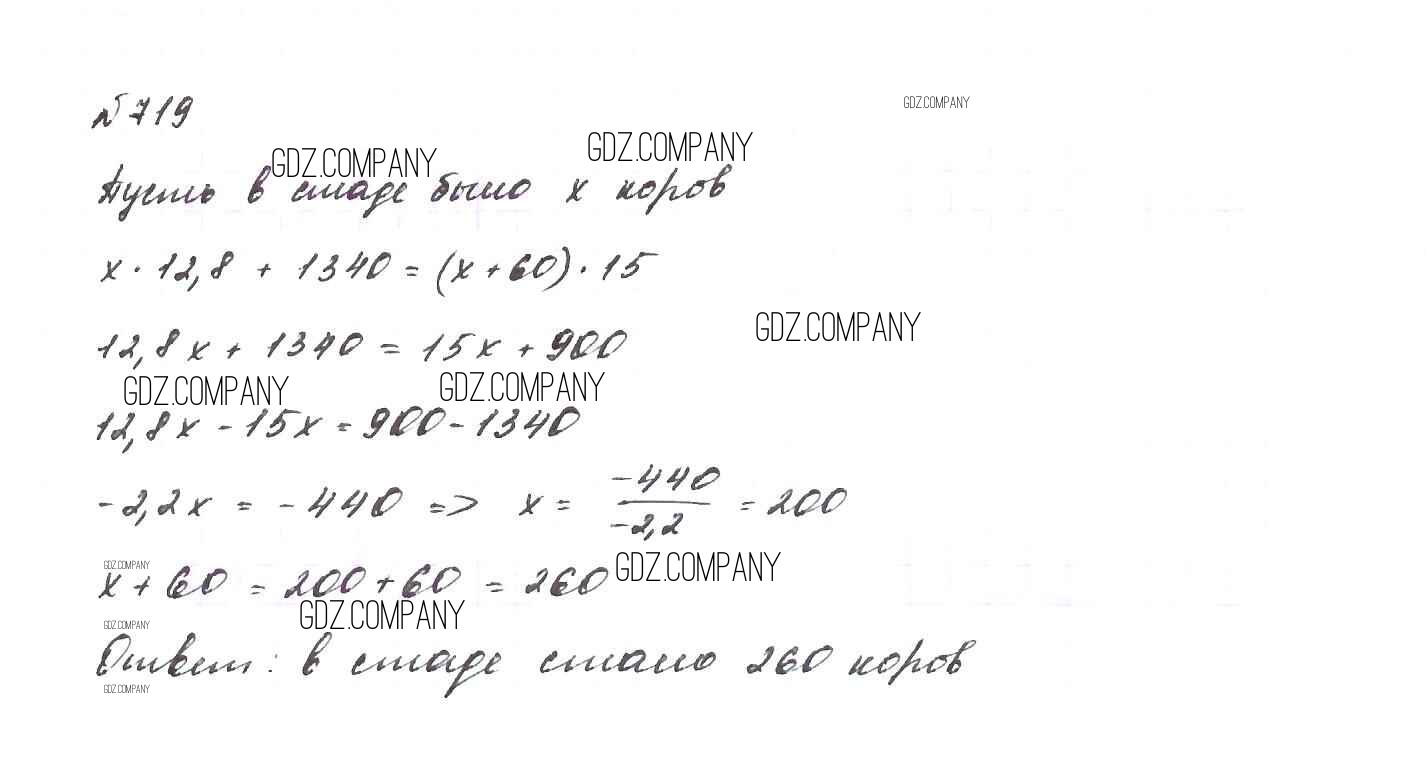 № 719
GDZ.COMPANY
GDZ.COMPANY
GDZ.COMPANY
Пусть в стаде было x коров
x · 12,8 + 1340 = (x + 60) · 15
GDZ.COMPANY
12,8x + 1340 = 15x + 900
GDZ.COMPANY
GDZ.COMPANY
12,8x - 15x = 900 - 1340
-2,2x = -440 => x = -440/-2,2 = 200
GDZ.COMPANY
GDZ.COMPANY
x + 60 = 200 + 60 = 260
GDZ.COMPANY
GDZ.COMPANY
Ответ: в стаде стало 260 коров
GDZ.COMPANY